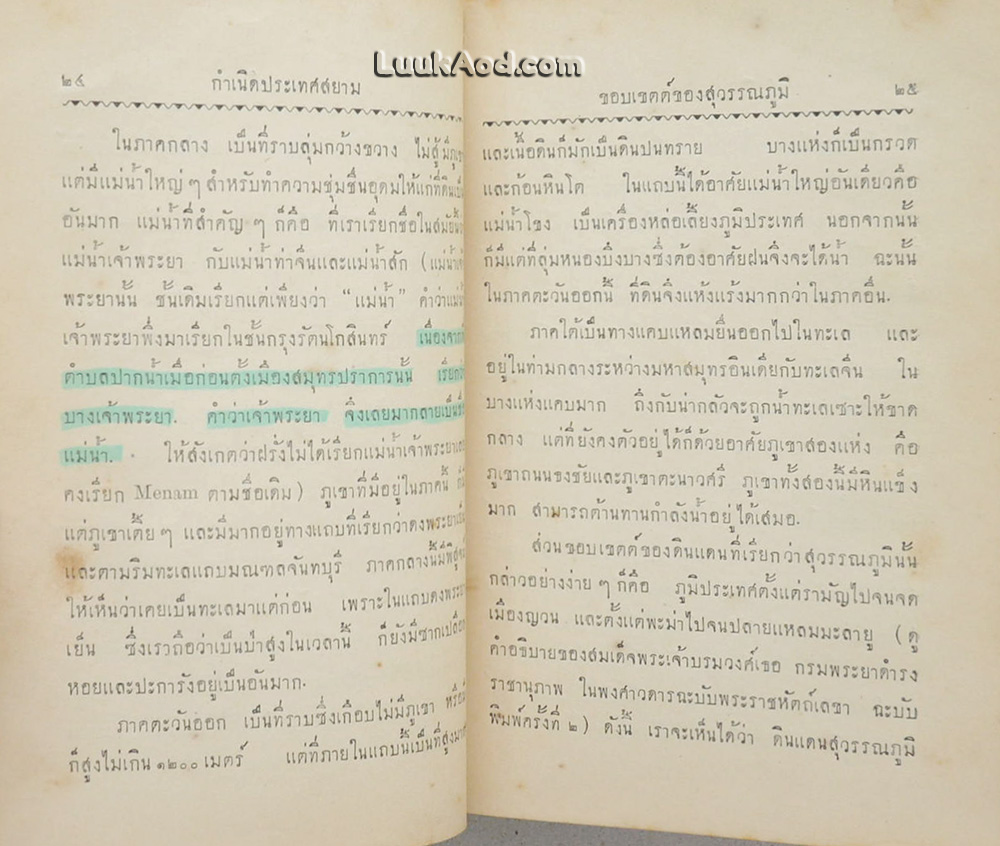 LuukAod.com
๒๔
กำเนิดประเทศสยาม
ในภาคกลาง เป็นที่ราบลุ่มกว้างขวาง ไม่สู้มีภูเขา
แต่มีแม่น้ำใหญ่ ๆ สำหรับทำความชุ่มชื่นอุดมให้แก่ที่ดินเป็น
อันมาก แม่น้ำที่สำคัญ ๆ ก็คือ ที่เราเรียกชื่อในสมัยนี้
แม่น้ำเจ้าพระยา กับแม่น้ำท่าจีนและแม่น้ำสัก (แม่น้ำ
พระยานั้น ชั้นเดิมเรียกแต่เพียงว่า “แม่น้ำ” คำว่าแม่น้ำ
เจ้าพระยาพึ่งมาเรียกในชั้นกรุงรัตนโกสินทร์ เนื่องจาก
ตำบลปากน้ำเมื่อก่อนตั้งเมืองสมุทรปราการนั้น เรียก
บางเจ้าพระยา. คำว่าเจ้าพระยา จึงเลยมากลายเป็นชื่อ
แม่น้ำ. ให้สังเกตว่าฝรั่งไม่ได้เรียกแม่น้ำเจ้าพระยา
คงเรียก Menam ตามชื่อเดิม) ภูเขาที่มีอยู่ในภาคนี้ ก็มี
แต่ภูเขาเตี้ย ๆ และมีมากอยู่ทางแถบที่เรียกว่าดงพระยา
และตามริมทะเลแถบมณฑลจันทบุรี ภาคกลางนี้มี
ให้เห็นว่าเคยเป็นทะเลมาแต่ก่อน เพราะในแถบดงพระยา
เย็น ซึ่งเราถือว่าเป็นป่าสูงในเวลานี้ ก็ยังมีซากเปลือก
หอยและปะการังอยู่เป็นอันมาก.
ภาคตะวันออก เป็นที่ราบซึ่งเกือบไม่มีภูเขา หรือมี
ก็สูงไม่เกิน ๑๒๐๐ เมตร์ แต่ที่ภายในแถบนี้เป็นที่สูงมาก
ขอบเขตต์ของสุวรรณภูมิ
๒๕
และเนื้อดินก็มักเป็นดินปนทราย บางแห่งก็เป็นกรวด
และก้อนหินโต ในแถบนี้ได้อาศัยแม่น้ำใหญ่อันเดียวคือ
แม่น้ำโขง เป็นเครื่องหล่อเลี้ยงภูมิประเทศ นอกจากนั้น
ก็มีแต่ที่ลุ่มหนองบึงบางซึ่งต้องอาศัยฝนจึงจะได้น้ำ ฉะนั้น
ในภาคตะวันออกนี้ ที่ดินจึงแห้งแร้งมากกว่าในภาคอื่น.
ภาคใต้เป็นทางแคบแหลมยื่นออกไปในทะเล และ
อยู่ในท่ามกลางระหว่างมหาสมุทรอินเดียกับทะเลจีน ใน
บางแห่งแคบมาก ถึงกับน่ากลัวจะถูกน้ำทะเลเซาะให้ขาด
กลาง แต่ที่ยังคงตัวอยู่ได้ก็ด้วยอาศัยภูเขาสองแห่ง คือ
ภูเขาถนนธงชัยและภูเขาตะนาวศรี ภูเขาทั้งสองนี้มีหินแข็ง
มาก สามารถต้านทานกำลังน้ำอยู่ได้เสมอ.
ส่วนขอบเขตต์ของดินแดนที่เรียกว่าสุวรรณภูมินั้น
กล่าวอย่างง่าย ๆ ก็คือ ภูมิประเทศตั้งแต่รามัญไปจนจด
เมืองญวน และตั้งแต่พะม่าไปจนปลายแหลมมะลายู (ดู
คำอธิบายของสมเด็จพระเจ้าบรมวงศ์เธอ กรมพระยาดำรง
ราชานุภาพ ในพงศาวดารฉะบับพระราชหัตถ์เลขา ฉะบับ
พิมพ์ครั้งที่ ๒) ดังนี้ เราจะเห็นได้ว่า ดินแดนสุวรรณภูมิ